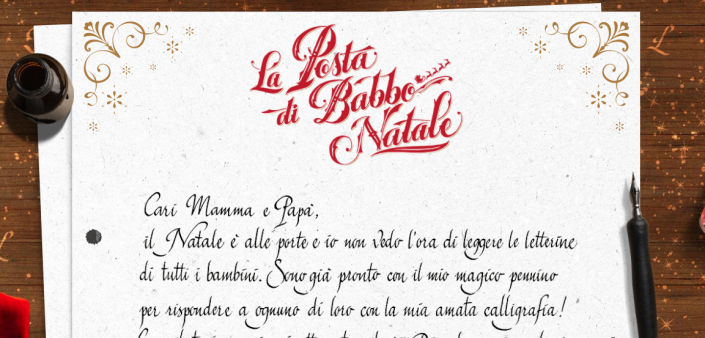 La Posta
di Babbo
Natale
Cari Mamma e Papà,
il Natale è alle porte e io non vedo l'ora di leggere le letterine
di tutti i bambini. Sono già pronto con il mio magico pennino
per rispondere a ognuno di loro con la mia amata calligrafia!